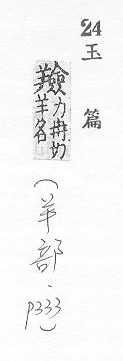 24
玉篇
力冉切
羊名
(羊部.p333)